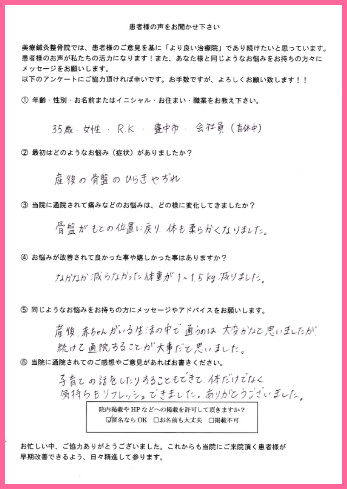 患者様の声をお聞かせ下さい
美療鍼灸整骨院では、患者様のご意見を基に「より良い治療院」であり続けたいと思っています。
患者様のお声が私たちの活力になります！また、あなた様と同じようなお悩みをお持ちの方々に
メッセージをお願いします。
以下のアンケートにご協力頂ければ幸いです。お手数ですが、よろしくお願い致します！！
① 年齢・性別・お名前またはイニシャル・お住まい・職業をお教え下さい。
35歳・女性・R.K・豊中市・会社員（育休中）
② 最初はどのようなお悩み（症状）がありましたか？
産後の骨盤のひらきやずれ
③ 当院に通院されて痛みなどのお悩みは、どの様に変化してきましたか？
骨盤がもとの位置に戻り、体も柔らかくなりました。
④ お悩みが改善されて良かった事や嬉しかった事はありますか？
なかなか減らなかった体重が1~1.5kg減りました。
⑤ 同じようなお悩みをお持ちの方にメッセージやアドバイスをお願いします。
産後、赤ちゃんがいる生活の中で通うのは大変かなと思いましたが
続けて通院することが大事だと思いました。
⑥ 当院に通院されてのご感想やご意見があればお書きください。
子育ての話をしたりすることもできて、体だけでなく
気持ちもリフレッシュできました。ありがとうございました。
院内掲載やHPなどへの掲載を許可して頂きますか？
☑匿名ならOK □お名前も大丈夫 □掲載不可
お忙しい中、ご協力ありがとうございました。これからも当院にご来院頂く患者様が
早期改善できるよう、日々精進して参ります。